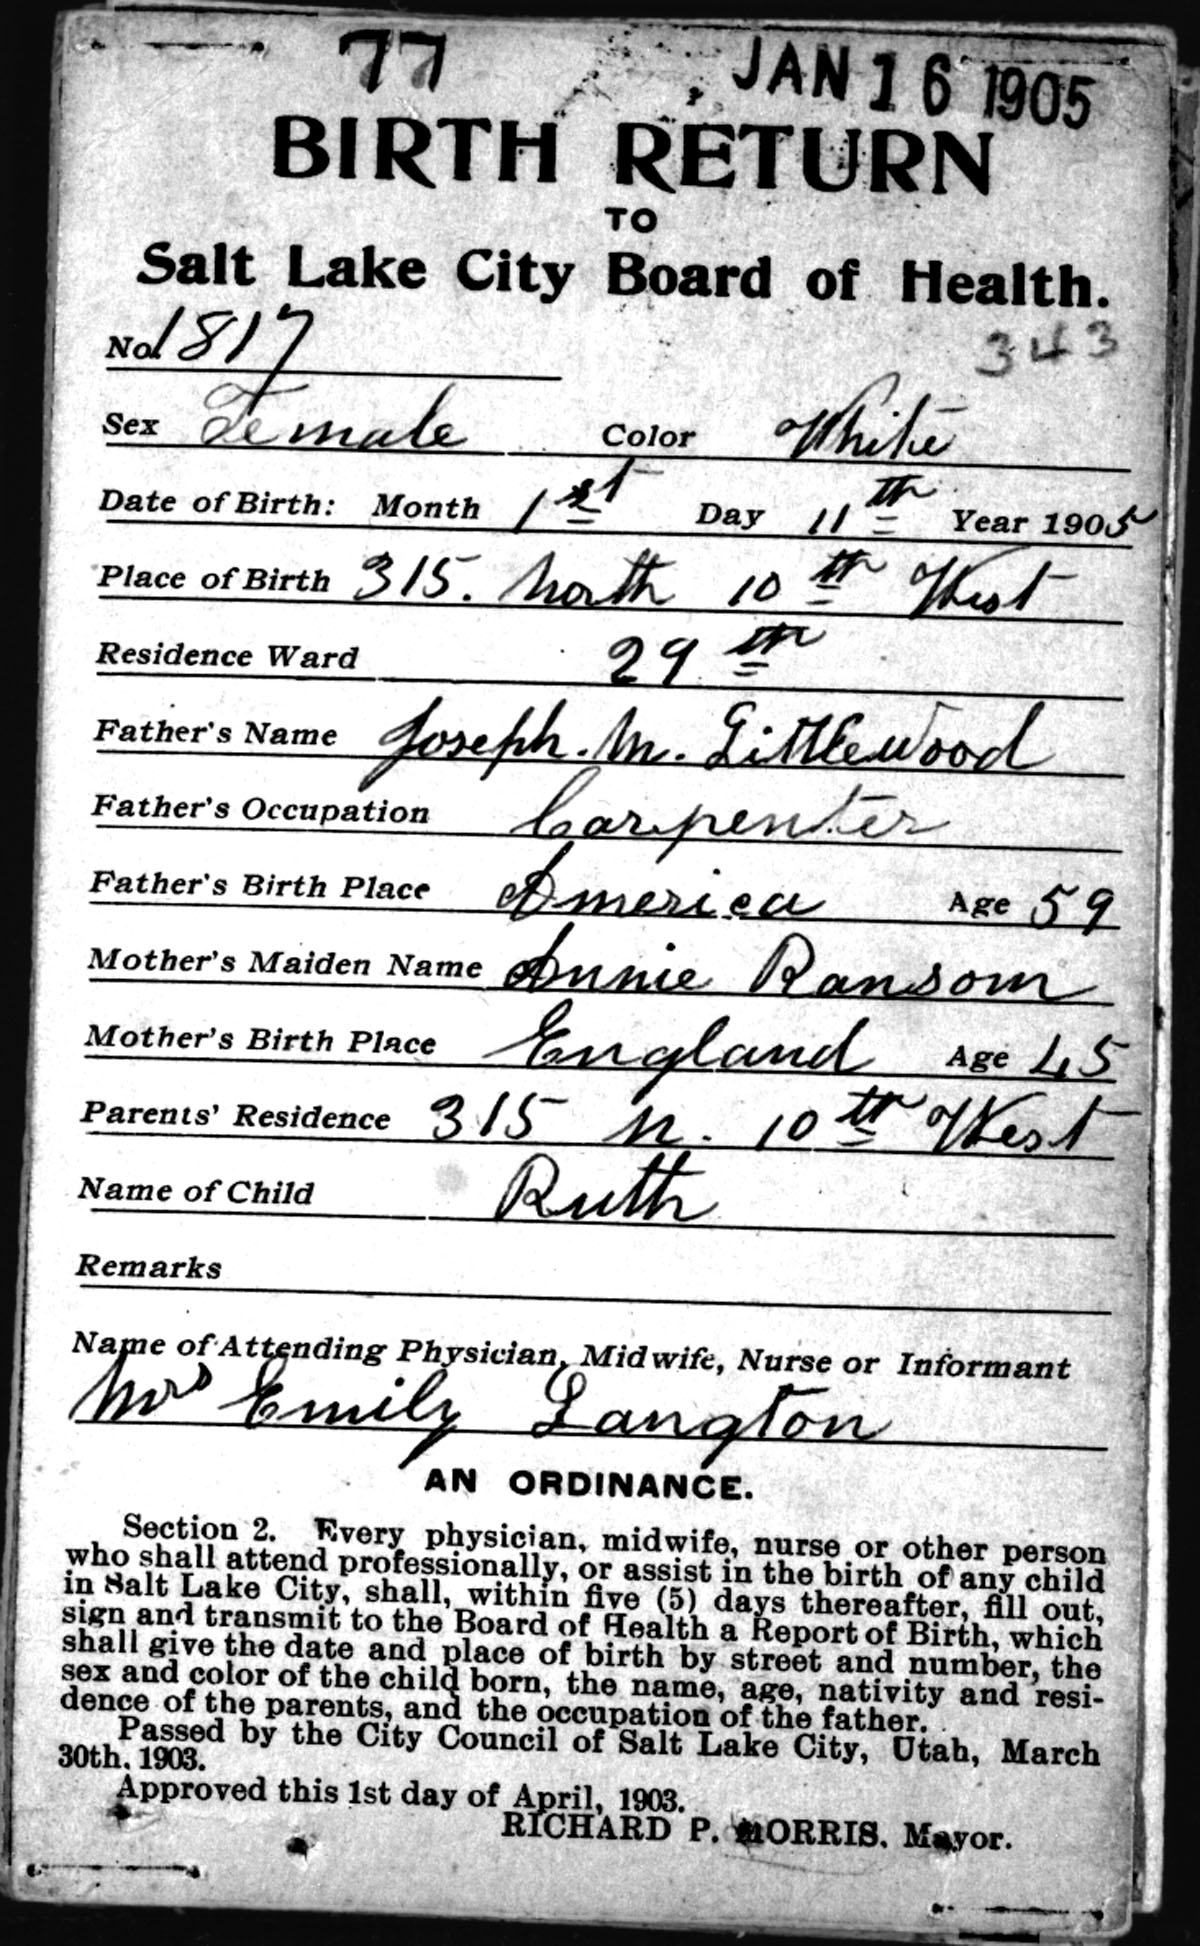 77 JAN 16 1905
BIRTH RETURN
TO
Salt Lake City Board of Health.
No. 1817
343
Sex Female Color White
Date of Birth: Month 1st Day 11th Year 1905
Place of Birth 315. North 10th West
Residence Ward 29th
Father's Name Joseph. M. Littlewood
Father's Occupation Carpenter
Father's Birth Place America Age 59
Mother's Maiden Name Annie Ransom
Mother's Birth Place England Age 45
Parents' Residence 315 N. 10th West
Name of Child Ruth
Remarks
Name of Attending Physician, Midwife, Nurse or Informant
Mrs Emily Langton
AN ORDINANCE.
Section 2. Every physician, midwife, nurse or other person
who shall attend professionally, or assist in the birth of any child
in Salt Lake City, shall, within five (5) days thereafter, fill out,
sign and transmit to the Board of Health a Report of Birth, which
shall give the date and place of birth by street and number, the
sex and color of the child born, the name, age, nativity and resi-
dence of the parents, and the occupation of the father.
Passed by the City Council of Salt Lake City, Utah, March
30th, 1903.
Approved this 1st day of April, 1903.
RICHARD P. MORRIS, Mayor.